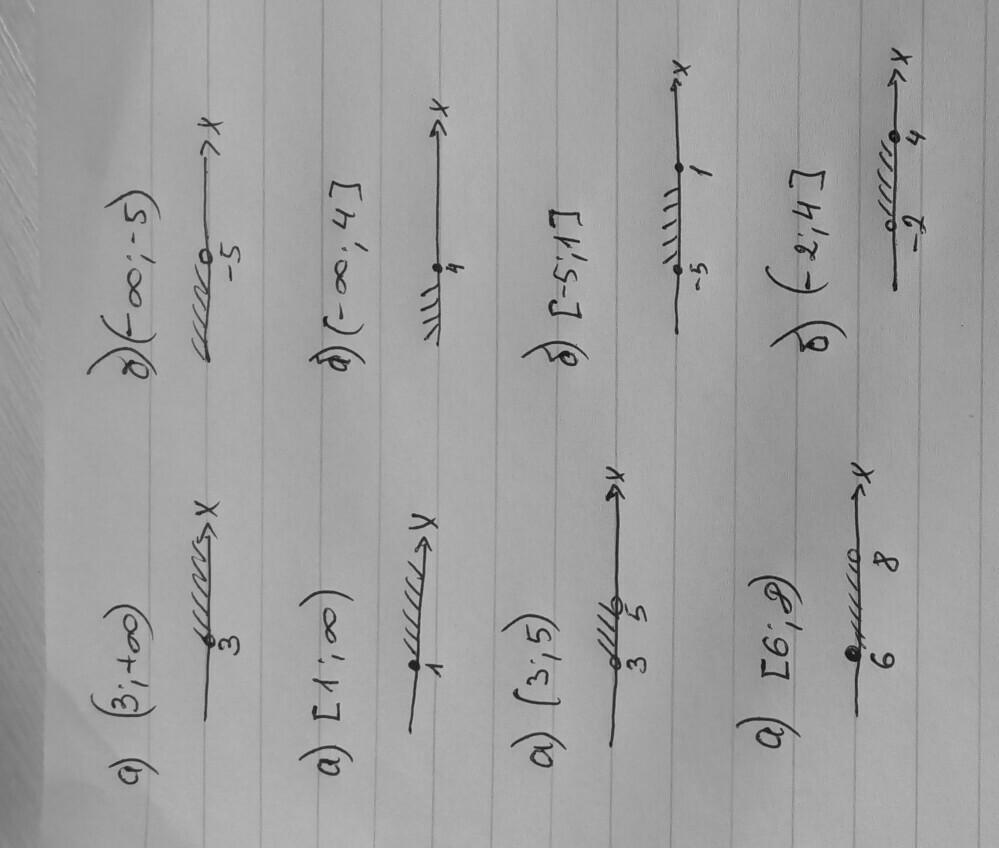 а) (3;+∞)  б) (-∞;-5)
3 x  -5 x
а) [1;∞)  б) (-∞;4]
1 x  4 x
а) (3;5)  б) [-5;1]
3 5 x  -5 1 x
а) [6;8)  б) (-2;4]
6 8 x  -2 4 x